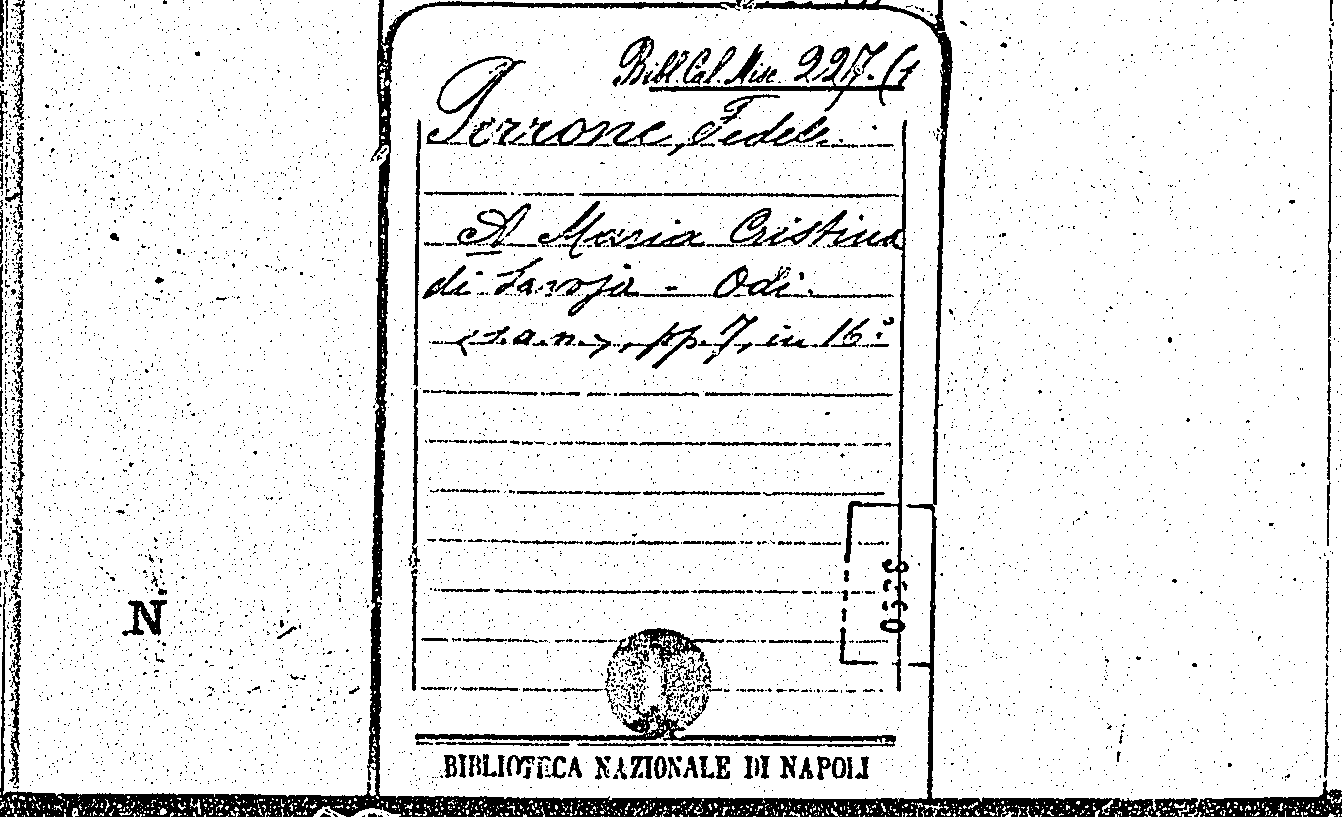 Bibl. Cal. Misc. 227. (1
Perrone, Fedele.
A Maria Cristina
di Savoja - Odi.
(s.a.n.), pp. 7, in 16º
N
BIBLIOTECA NAZIONALE DI NAPOLI